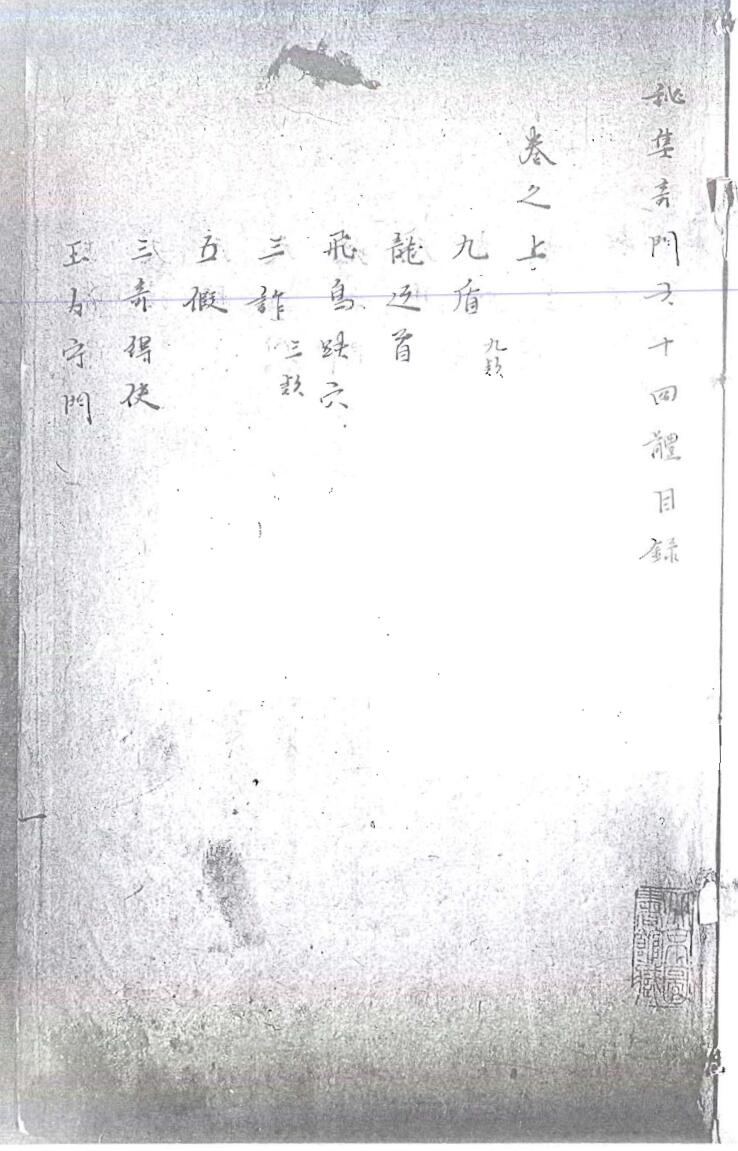 秘集奇門五十四體目録
卷之上
九盾 九類
龍返首
飛鳥跌穴
三詐 三類
五假
三奇得使
玉女守門